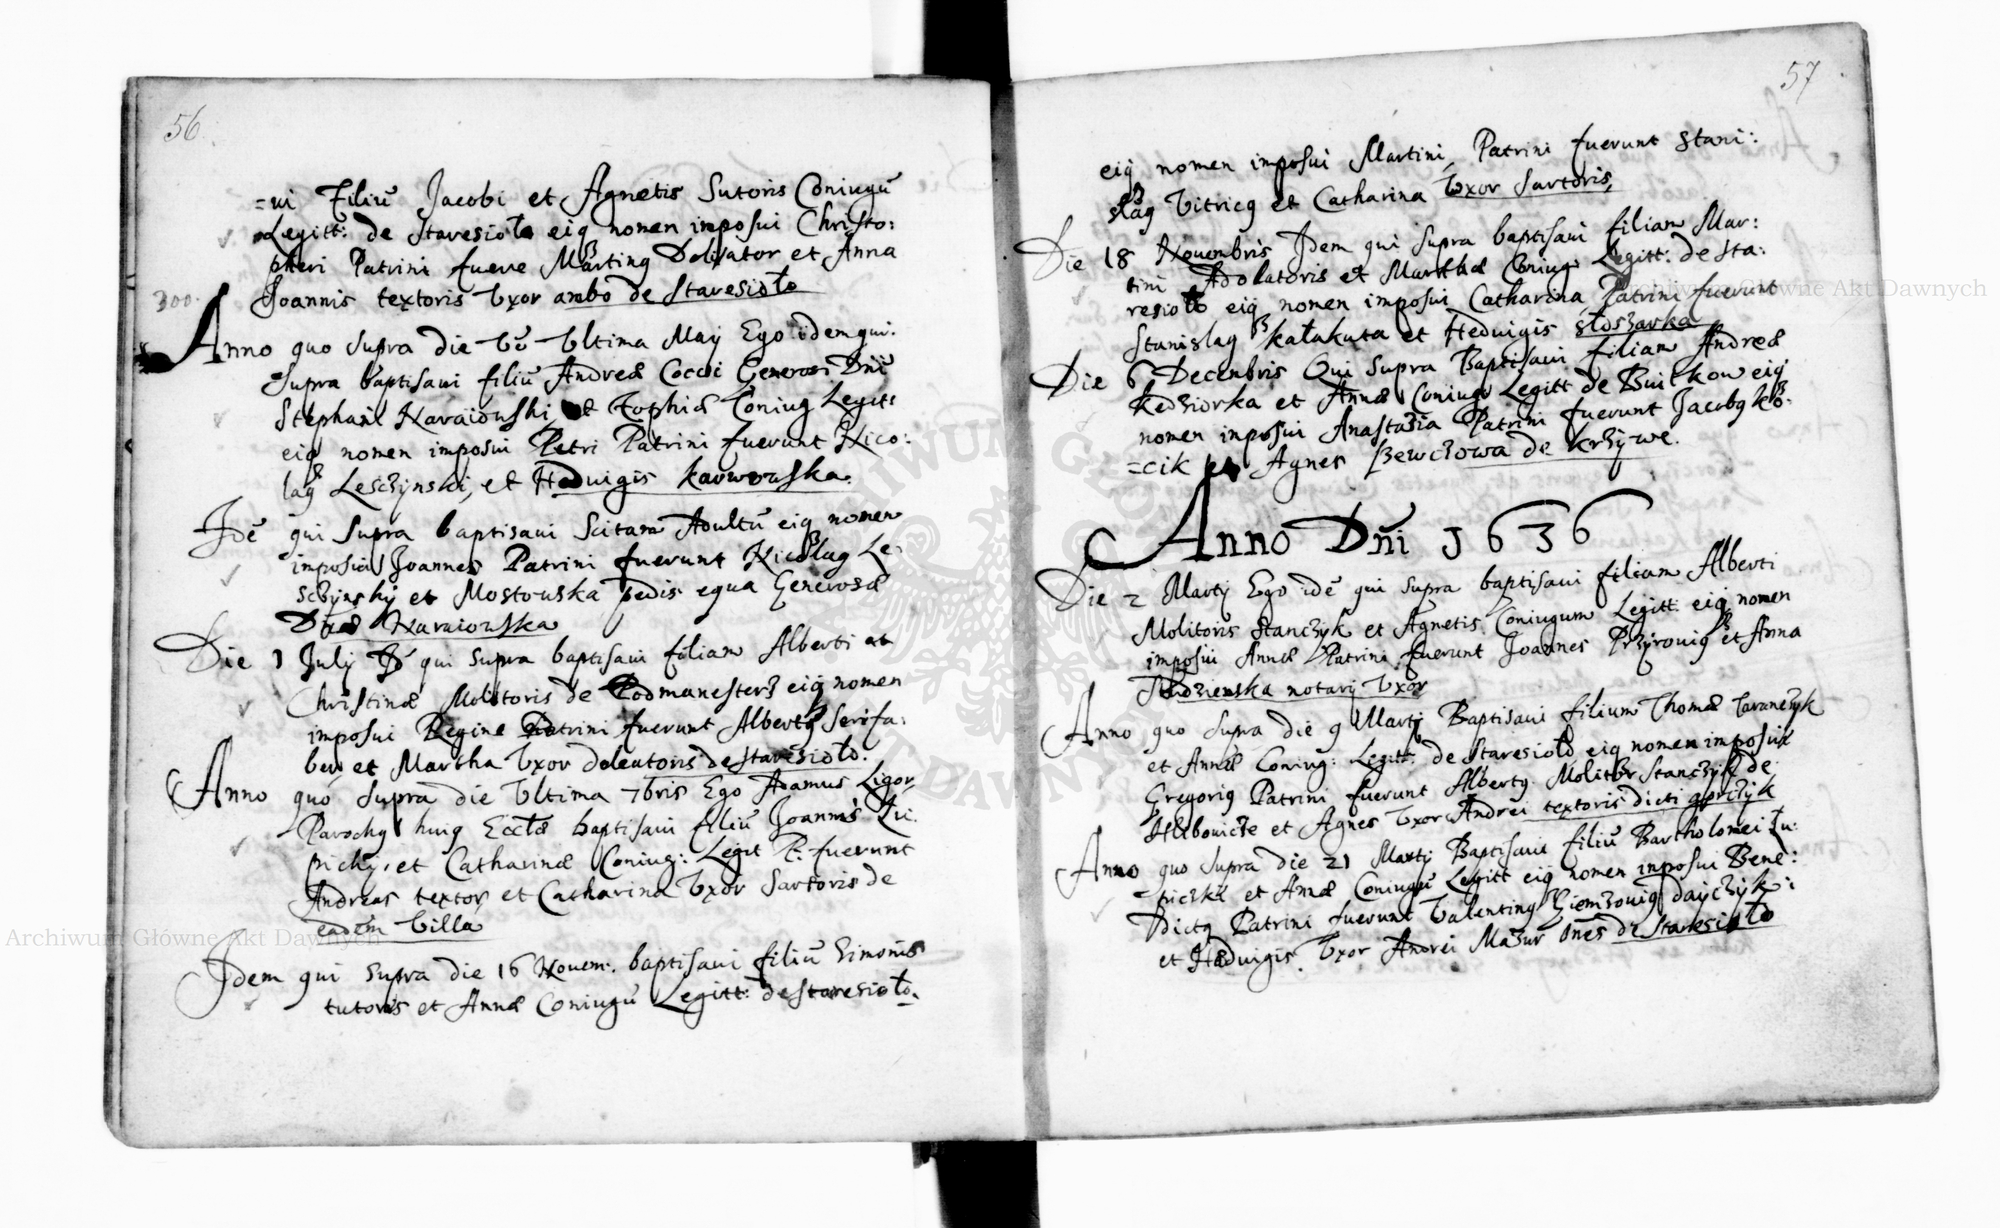 56
=ui Filiū Jacobi et Agnetis Sutoris Coniugū
Legitt: de Staresioło eiq nomen imposui Christo:
pheri Patrini fuere Martinq Dolivator et Anna
Joannis textoris Vxor ambo de Staresioło
300.
Anno quo supra die Vltima May Ego idem qui
supra baptisaui filiū Andreæ Cocci Generosi Dñi
Stephani Naraiowski, et Zophiæ Coniug Legitt
eiq nomen imposui Petri Patrini fuerunt Nico:
laq Lesczynski, et Hedwigis karwowska.
Idē qui supra baptisaui Scitam Adultū eiq nomen
imposui Joannes Patrini fuerunt Nicolaq Le:
sczynskij et Mostowska pedis equa Generosæ
Dñæ Naraiowska
Die 1 July Idē qui supra baptisaui filiam Alberti et
Christinæ Molitoris de Podmanesterz eiq nomen
imposui Reginæ Patrini fuerunt Albertq Serifa:
ber et Martha Vxor doleatoris de Staresioło.
Anno quo supra die Vltima 7bris Ego Adamus Ligor
Parochq huiq Eccłæ baptisaui filiū Joannis Kri:
pichy, et Catharinæ Coniug: Legit P: fuerunt
Andreas textor et Catharina Vxor Sartoris de
eadem Villa
Idem qui supra die 16 Nouem: baptisaui filiū Simonis
tutoris et Annæ Coniugū Legitt: de Staresioło.
57
eiq nomen imposui Martini, Patrini fuerunt Stani:
slaq Vitricq et Catharina Vxor Sartoris,
Die 18 Nouenbris Idem qui supra baptisaui filiam Mar:
tini Adolatoris et Marthæ Coniug Legitt: de Sta:
resioło eiq nomen imposui Catharina Patrini fuerunt
Stanislaq kałakuta et Hedvigis słoszarka
Die 6 Decenbris Qui supra Baptisaui filiam Andreæ
kedziorka et Annæ Coniugū Legitt de Buitkow eiq
nomen inposui Anastazia Patrini fuerunt Jacobq ko:
=cik et Agnes szewczowa de krzywe.
Anno Dñi 1636
Die 2 Martij Ego idē qui supra baptisaui filiam Alberti
Molitoris Stanczyk et Agnetis Coniugum Legitt eiq nomen
imposui Annæ Patrini fuerunt Joannes Przyrouiq et Anna
Studzienska notarij Vxor
Anno quo supra die 9 Martij Baptisaui filium Thomæ taranczyk
et Annæ Coniug: Legitt: de Staresioło eiq nomen imposui
Gregoriq Patrini fuerunt Albertq Molitor Stanczyk de
Hlibowicze et Agnes Vxor Andrei textoris dicti gprczyk
Anno quo supra die 21 Martij Baptisaui filiū Bartholomei tu:
=piczki et Annæ Coniugū Legitt eiq nomen inposui Bene:
Dictq Patrini fuerunt Valentinq Ziemzouiq daijczyk:
et Hedvigis Vxor Andrei Mazur ōnes de Staresioło
Archiwum Główne Akt Dawnych